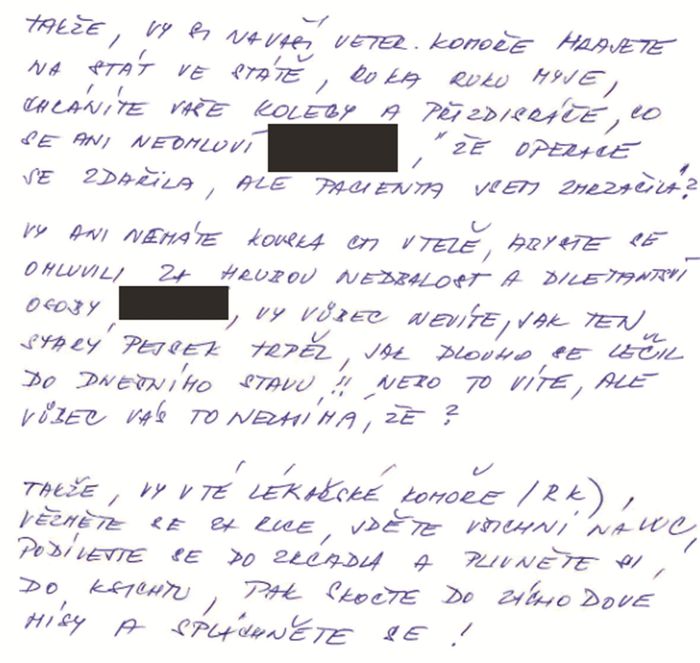 TAKŽE, VY SI NA VAŠÍ VETER. KOMOŘE HRAJETE
NA STÁT VE STÁTĚ, RUKA RUKU MYJE,
CHRÁNÍTE VAŠE KOLEGY A PŘIZDISRÁČE, CO
SE ANI NEOMLUVÍ , "ŽE OPERACE
SE ZDAŘILA, ALE PACIENTA JSEM ZMRZAČILA"?
VY ANI NEMÁTE KOUSKA CTI V TĚLE, ABYSTE SE
OMLUVILI ZA HRUBOU NEDBALOST A DILETANTSVÍ
OSOBY , VY VŮBEC NEVÍTE, JAK TEN
STARÝ PEJSEK TRPĚL, JAK DLOUHO SE LÉČIL
DO DNEŠNÍHO STAVU!! NEBO TO VÍTE, ALE
VŮBEC VÁS TO NEZAJÍMÁ, ŽE?
TAKŽE, VY V TÉ LÉKAŘSKÉ KOMOŘE /RK),
VĚZMĚTE SE ZA RUCE, JDĚTE VŠICHNI NA WC,
PODÍVEJTE SE DO ZRCADLA A PLIVNĚTE SI,
DO KSICHTU, PAK SKOČTE DO ZÁCHODOVÉ
MÍSY A SPLÁCHNĚTE SE!